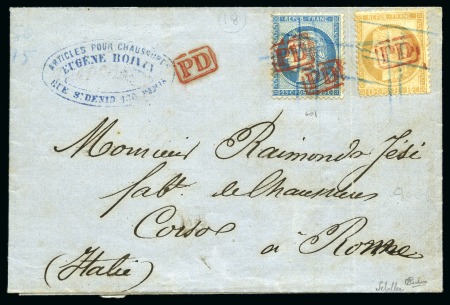 (18)
ARTICLES POUR CHAUSSURES
EUGÈNE BOIVIN
RUE St DENIS PARIS
PD
REPUB. FRANC.
PD
PD
REPUB. FRANC.
PD
Monsieur Raimondo Jési
fabt. de Chaussures
Corso
à Rome
(Italie)